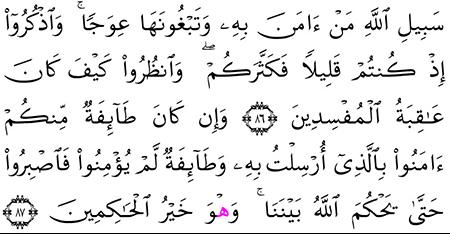 سَبِيلِ ٱللَّهِ مَنۡ ءَامَنَ بِهِۦ وَتَبۡغُونَهَا عِوَجٗاۚ وَٱذۡكُرُوٓاْ
إِذۡ كُنتُمۡ قَلِيلٗا فَكَثَّرَكُمۡۖ وَٱنظُرُواْ كَيۡفَ كَانَ
عَٰقِبَةُ ٱلۡمُفۡسِدِينَ ٨٦ وَإِن كَانَ طَآئِفَةٞ مِّنكُمۡ
ءَامَنُواْ بِٱلَّذِيٓ أُرۡسِلۡتُ بِهِۦ وَطَآئِفَةٞ لَّمۡ يُؤۡمِنُواْ فَٱصۡبِرُواْ
حَتَّىٰ يَحۡكُمَ ٱللَّهُ بَيۡنَنَاۚ وَهُوَ خَيۡرُ ٱلۡحَٰكِمِينَ ٨٧